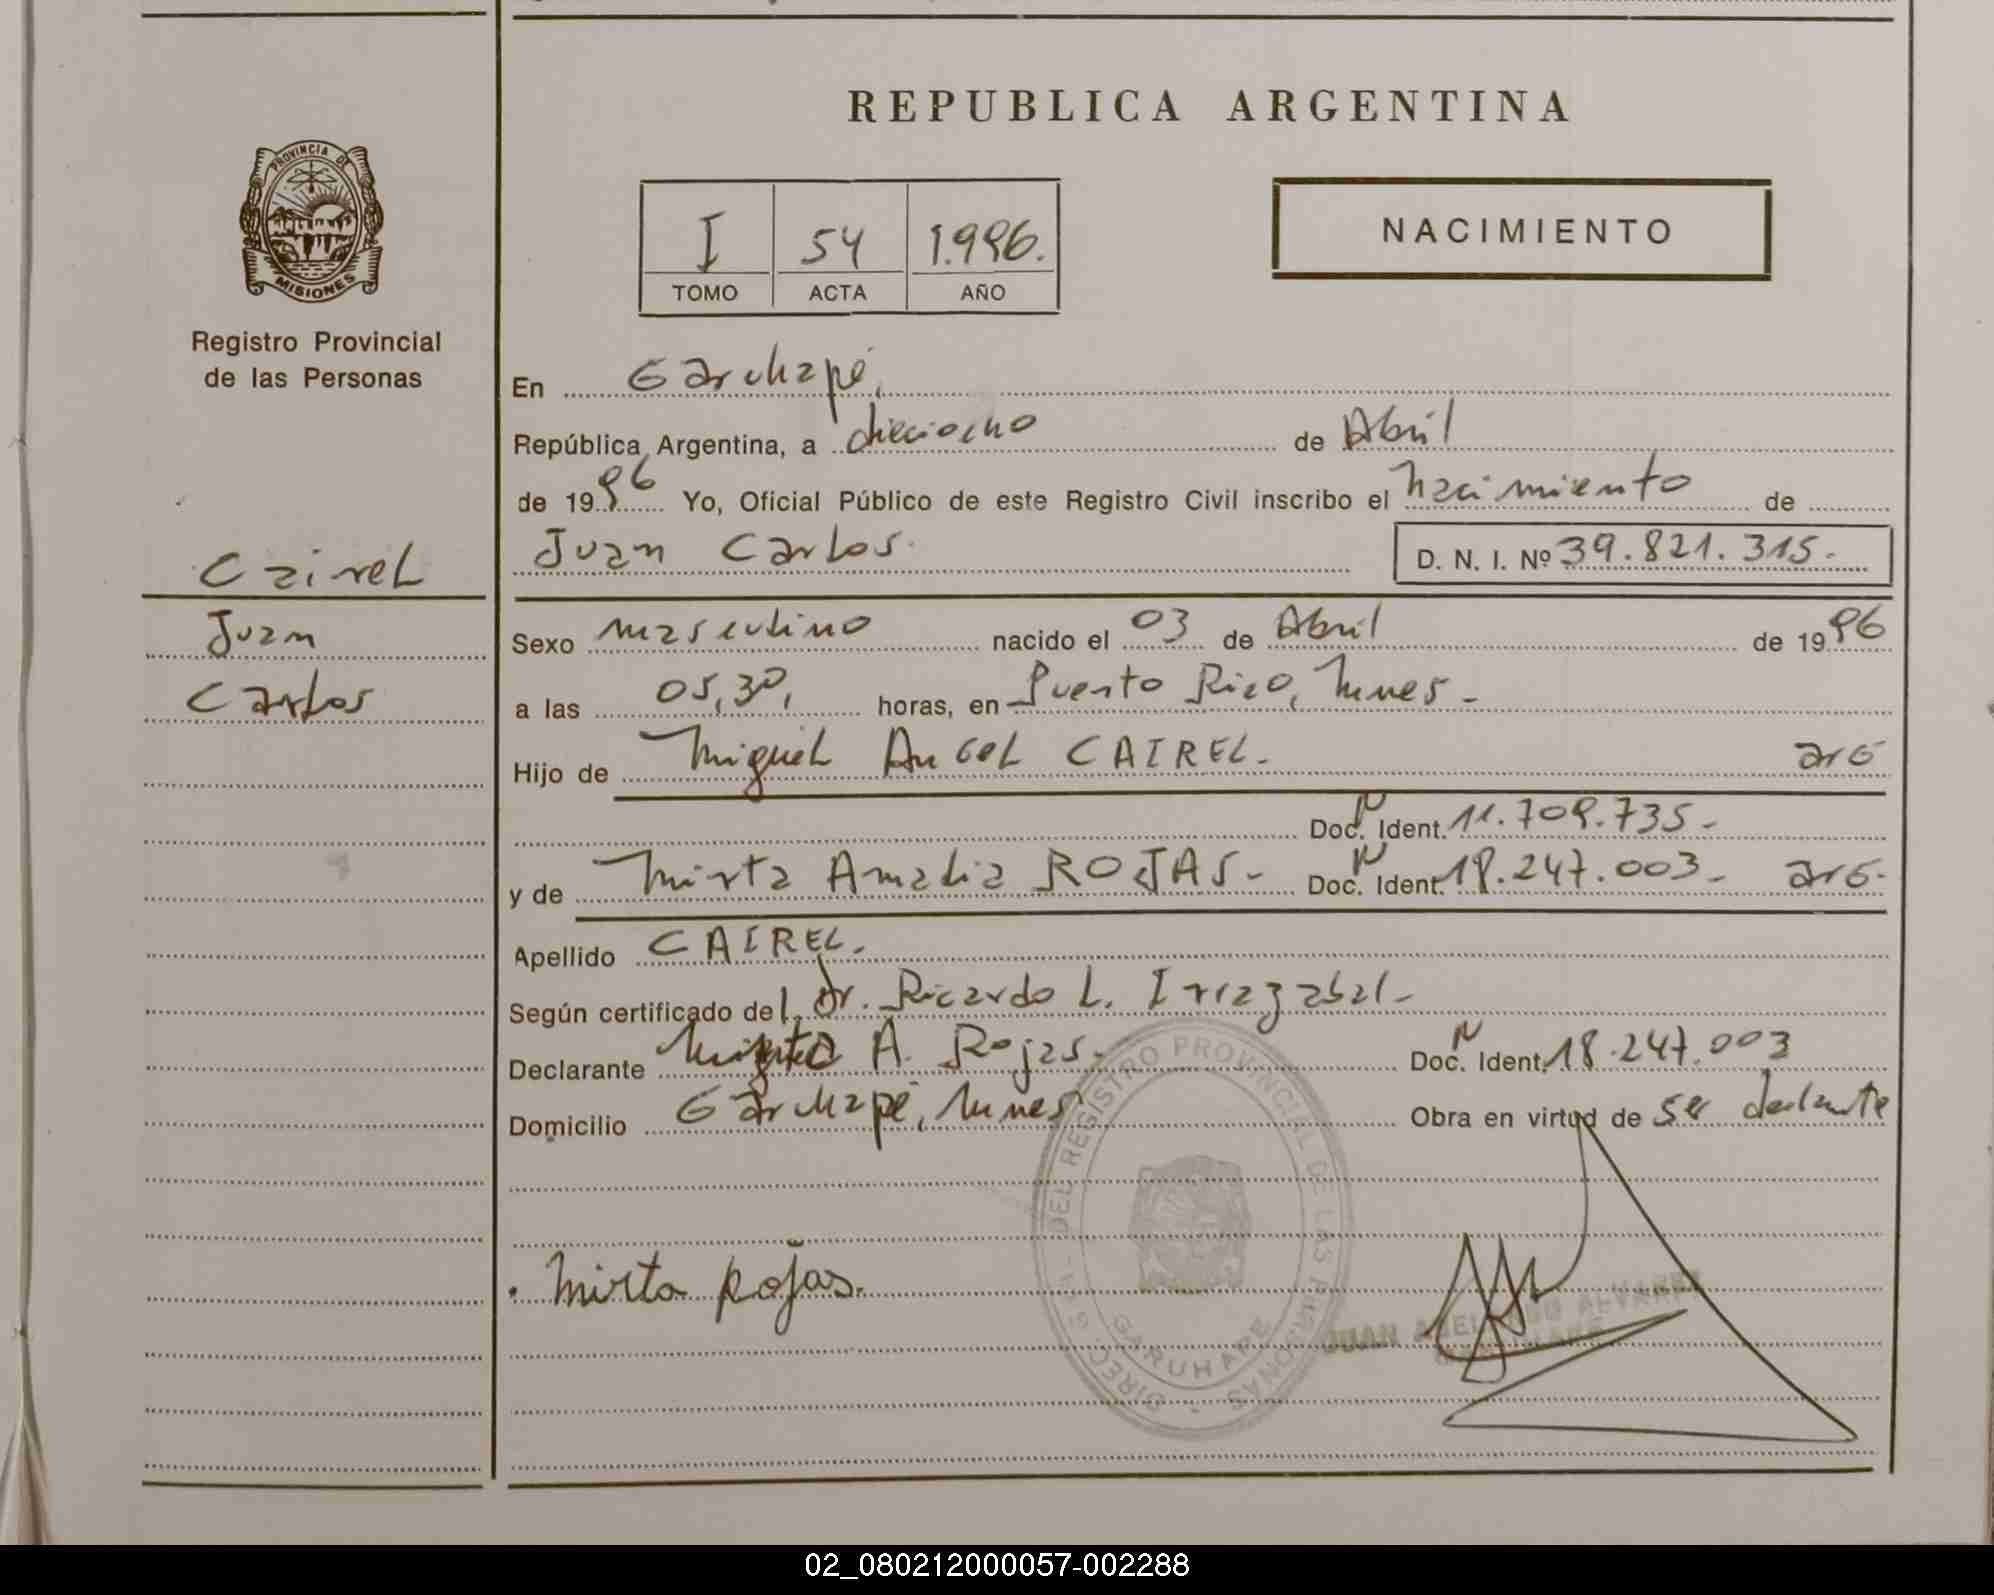 REPUBLICA ARGENTINA
PROVINCIA DE
MISIONES
Registro Provincial
de las Personas
I 54 1.996.
TOMO ACTA AÑO
NACIMIENTO
En Garuhapé,
República Argentina, a dieciocho de Abril
de 1996 Yo, Oficial Público de este Registro Civil inscribo el nacimiento de
Juan Carlos. D. N. I. Nº 39.821.315.-
Cairel
Juan
Carlos
Sexo masculino nacido el 03 de Abril de 1996
a las 05,30, horas, en Puerto Rico, Mnes.-
Hijo de Miguel Angel CAIREL.- arg
Doc. N Ident. 11.709.735.-
y de Mirta Amalia ROJAS.- Doc. N Ident. 18.247.003.- arg.
Apellido CAIREL.
Según certificado del Dr. Ricardo L. Irrazabal.-
Declarante A. Rojas.- Doc. N Ident. 18.247.003
Domicilio Garuhapé, Mnes Obra en virtud de ser declarante
DIREC. DEL REGISTRO PROVINCIAL DE LAS PERSONAS
GARUHAPE
Mirta Rojas.
JUAN ALVAREZ
02_080212000057-002288